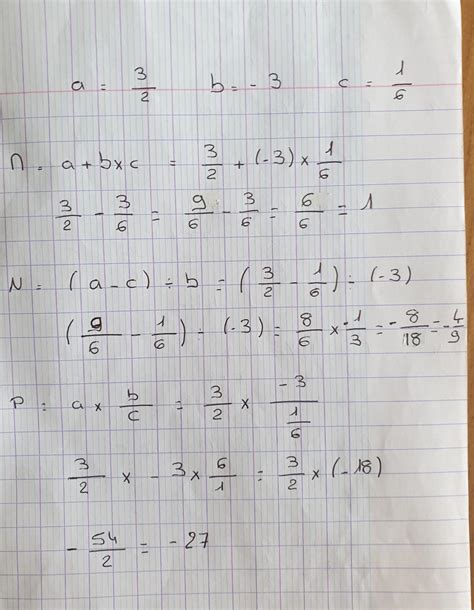 a = 3/2 b = - 3 c = 1/6
M = a + b × c = 3/2 + (-3) × 1/6
3/2 - 3/6 = 9/6 - 3/6 = 6/6 = 1
N = (a - c) ÷ b = (3/2 - 1/6) ÷ (-3)
(9/6 - 1/6) ÷ (-3) = 8/6 × -1/3 = -8/18 = -4/9
P = a × b/c = 3/2 × -3/(1/6)
3/2 × - 3 × 6/1 = 3/2 × (-18)
- 54/2 = - 27